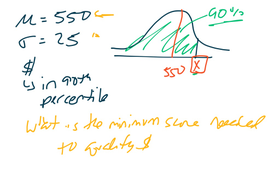 μ = 550
σ = 25
$
↳ in 90th
percentile
90%
550
X
What is the minimum score needed
to qualify $